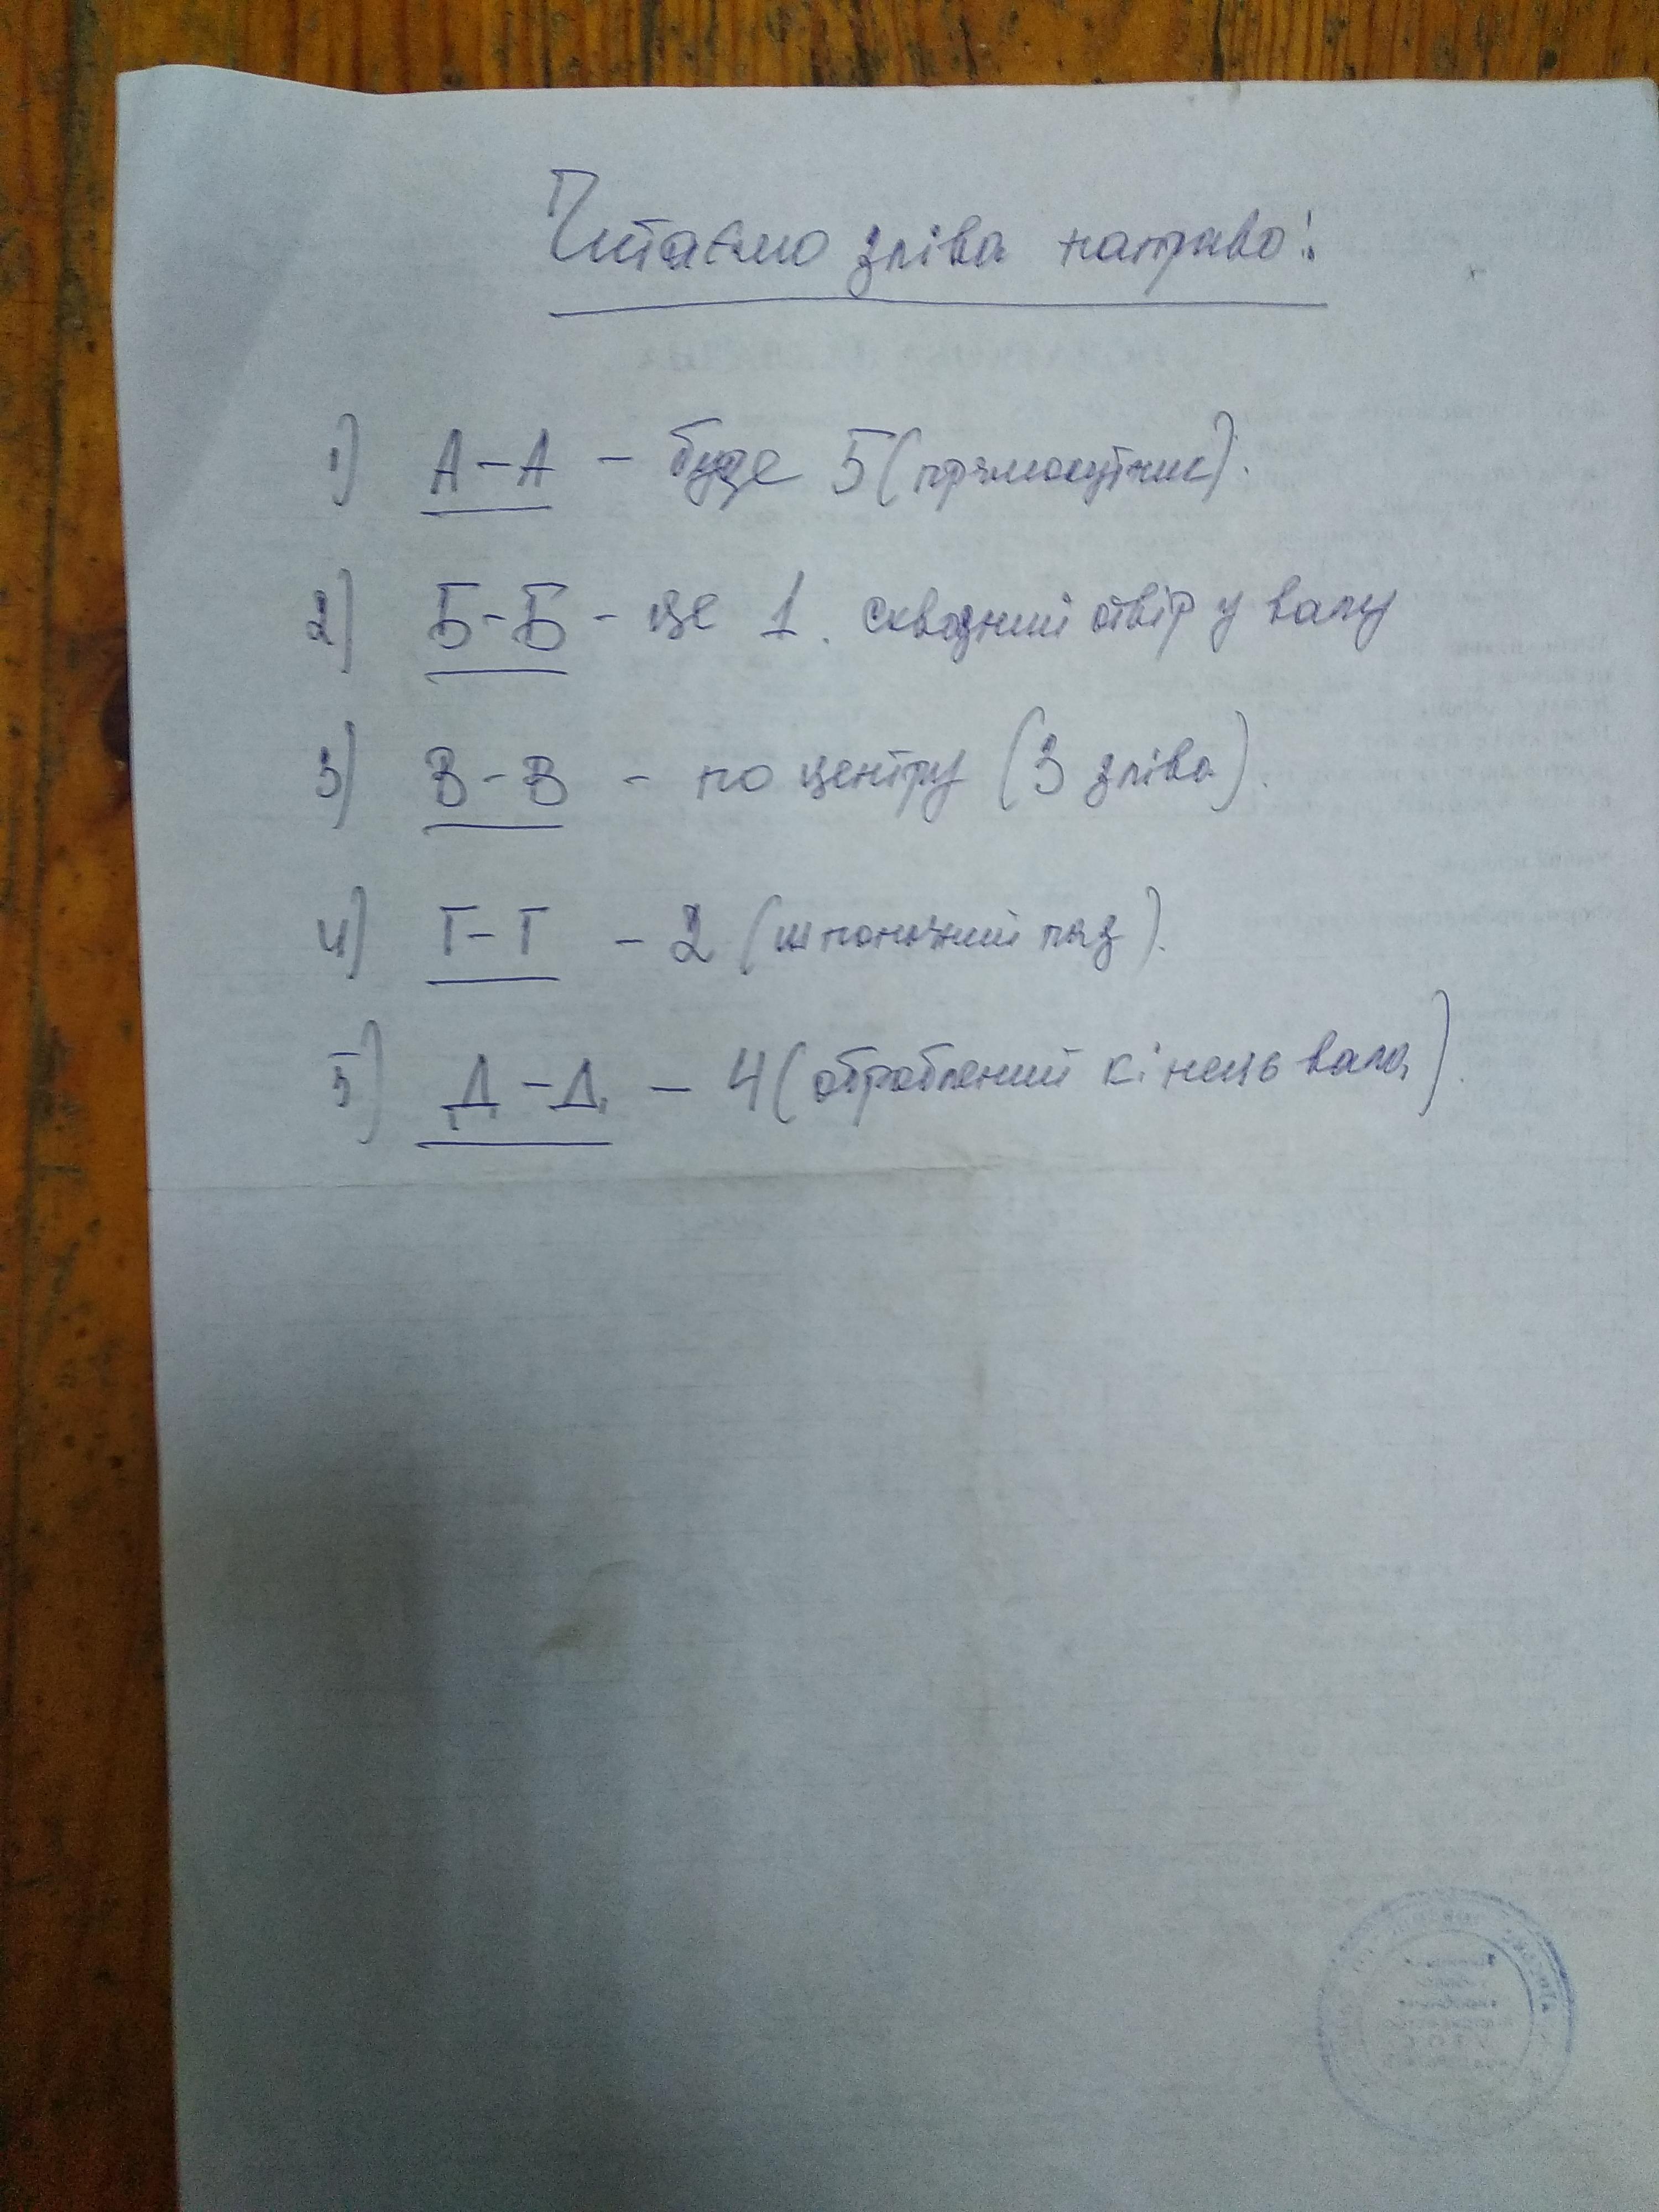 Читаємо зліва направо:
1) А-А - буде 5 (прямокутник).
2) Б-Б - це 1. сквозний отвір у валу
3) В-В - по центру (3 зліва).
4) Г-Г - 2 (шпоночний паз).
5) Д-Д - 4 (оброблений кінець вала).